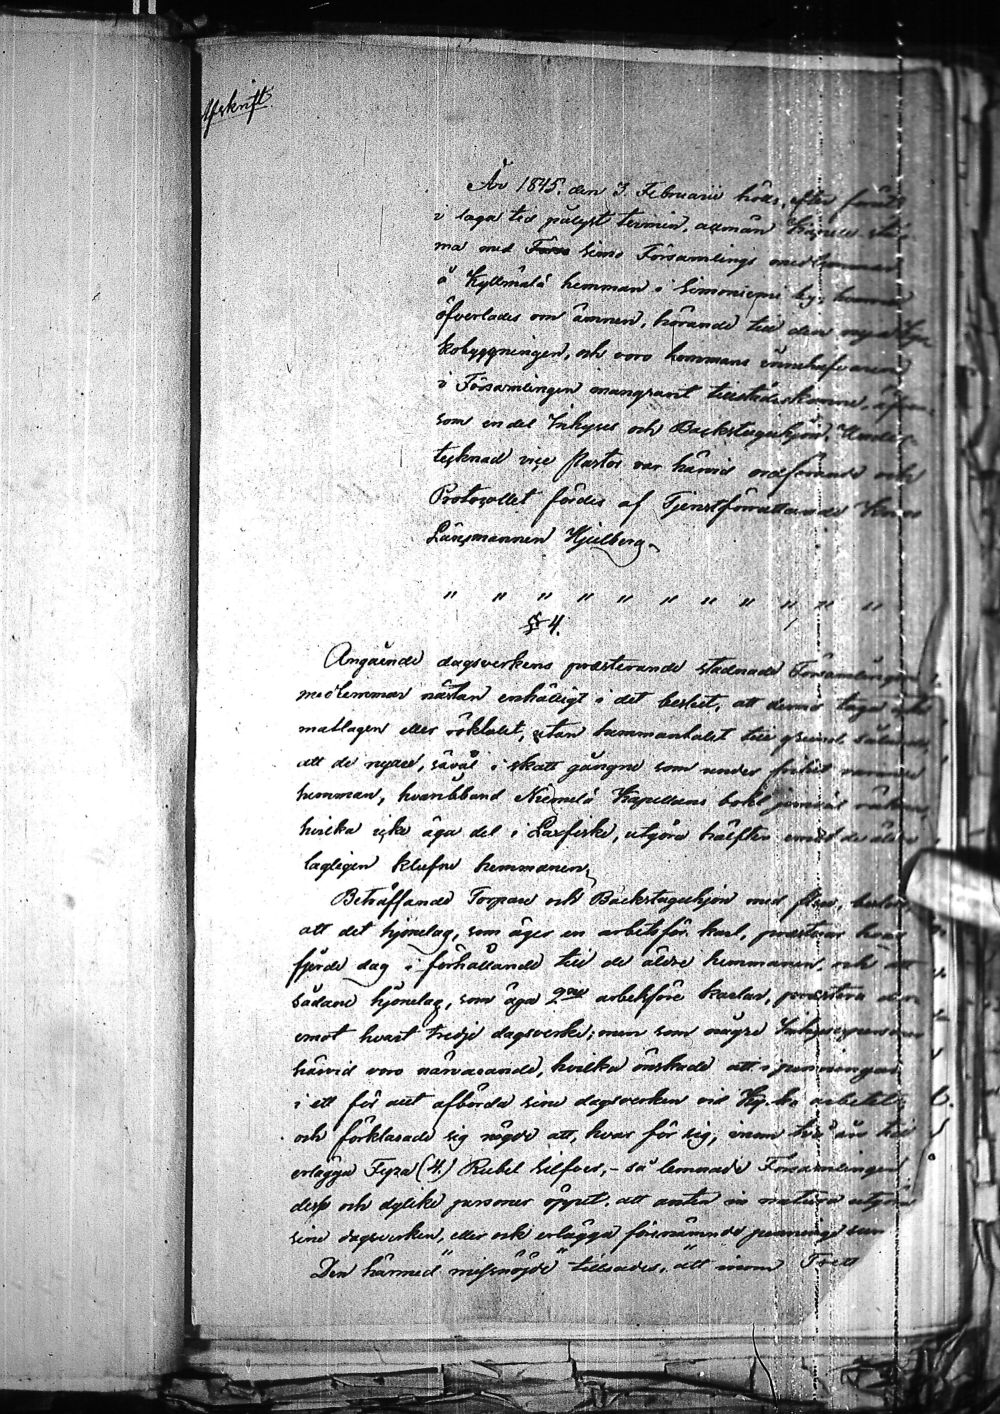 Afskrift.
År 1845. den 3. Februarii hölls, efter förut
i laga tid pålyst termin, allmän Kapells stäm
ma med Simo Församlings medlemmar
å Kyllmälä hemman i Simoniemi by;
öfverlades om ämnen, hörande till den nya Kyr
kobyggningen, och voro hemmans innehafvarena
i Församlingen mangrant tillstädeskomne, äfven
som en del Inhyses och Backstuguhjon. Under
tecknad vice Pastor var härvid ordförande och
Protocollet fördes af Tjenstförrättande
Länsmannen Hjelberg.
" " " " " " " " " " "
§ 4.
Angående dagsverkens præsterande stadnade Församlingens
medlemmar nästan enhälligt i det beslut, att dervid taga
matlagen eller röktalet, utan hemmantalet till grund sålunda,
att de nyare, såväl i skatt gångne som under frihet varande
hemman, hvaribland Niemelä Kapellans bohl
hvilka icke äga del i Laxfiske, utgöra hälften emot de äldre
lagligen klufne hemmanen.
Beträffande Torpare och Backstuguhjon med flere, beslöts,
att det hjonelag, som äger en arbetsför karl, præsterar hvar
fjerde dag i förhållande till de äldre hemmanen, och att
sådane hjonelag, som äga 2ne arbetsföre karlar, præstera der
emot hvart tredje dagsverke; men som någre
härvid voro närvarande, hvilka önskade att i penningar
i ett för allt afbörda sine dagsverken vid arbetet,
och förklarade sig nögde att, hvar för sig, inom två års tid
erlägga Fyra (4.) Rubel Silfver, – så lemnade Församlingen
dess och dylike personer öppet, att antingen in natura utgöra
sine dagsverken, eller ock erlägga förenämnde penninge
Den härmed "missnöjde" tillsades, att inom